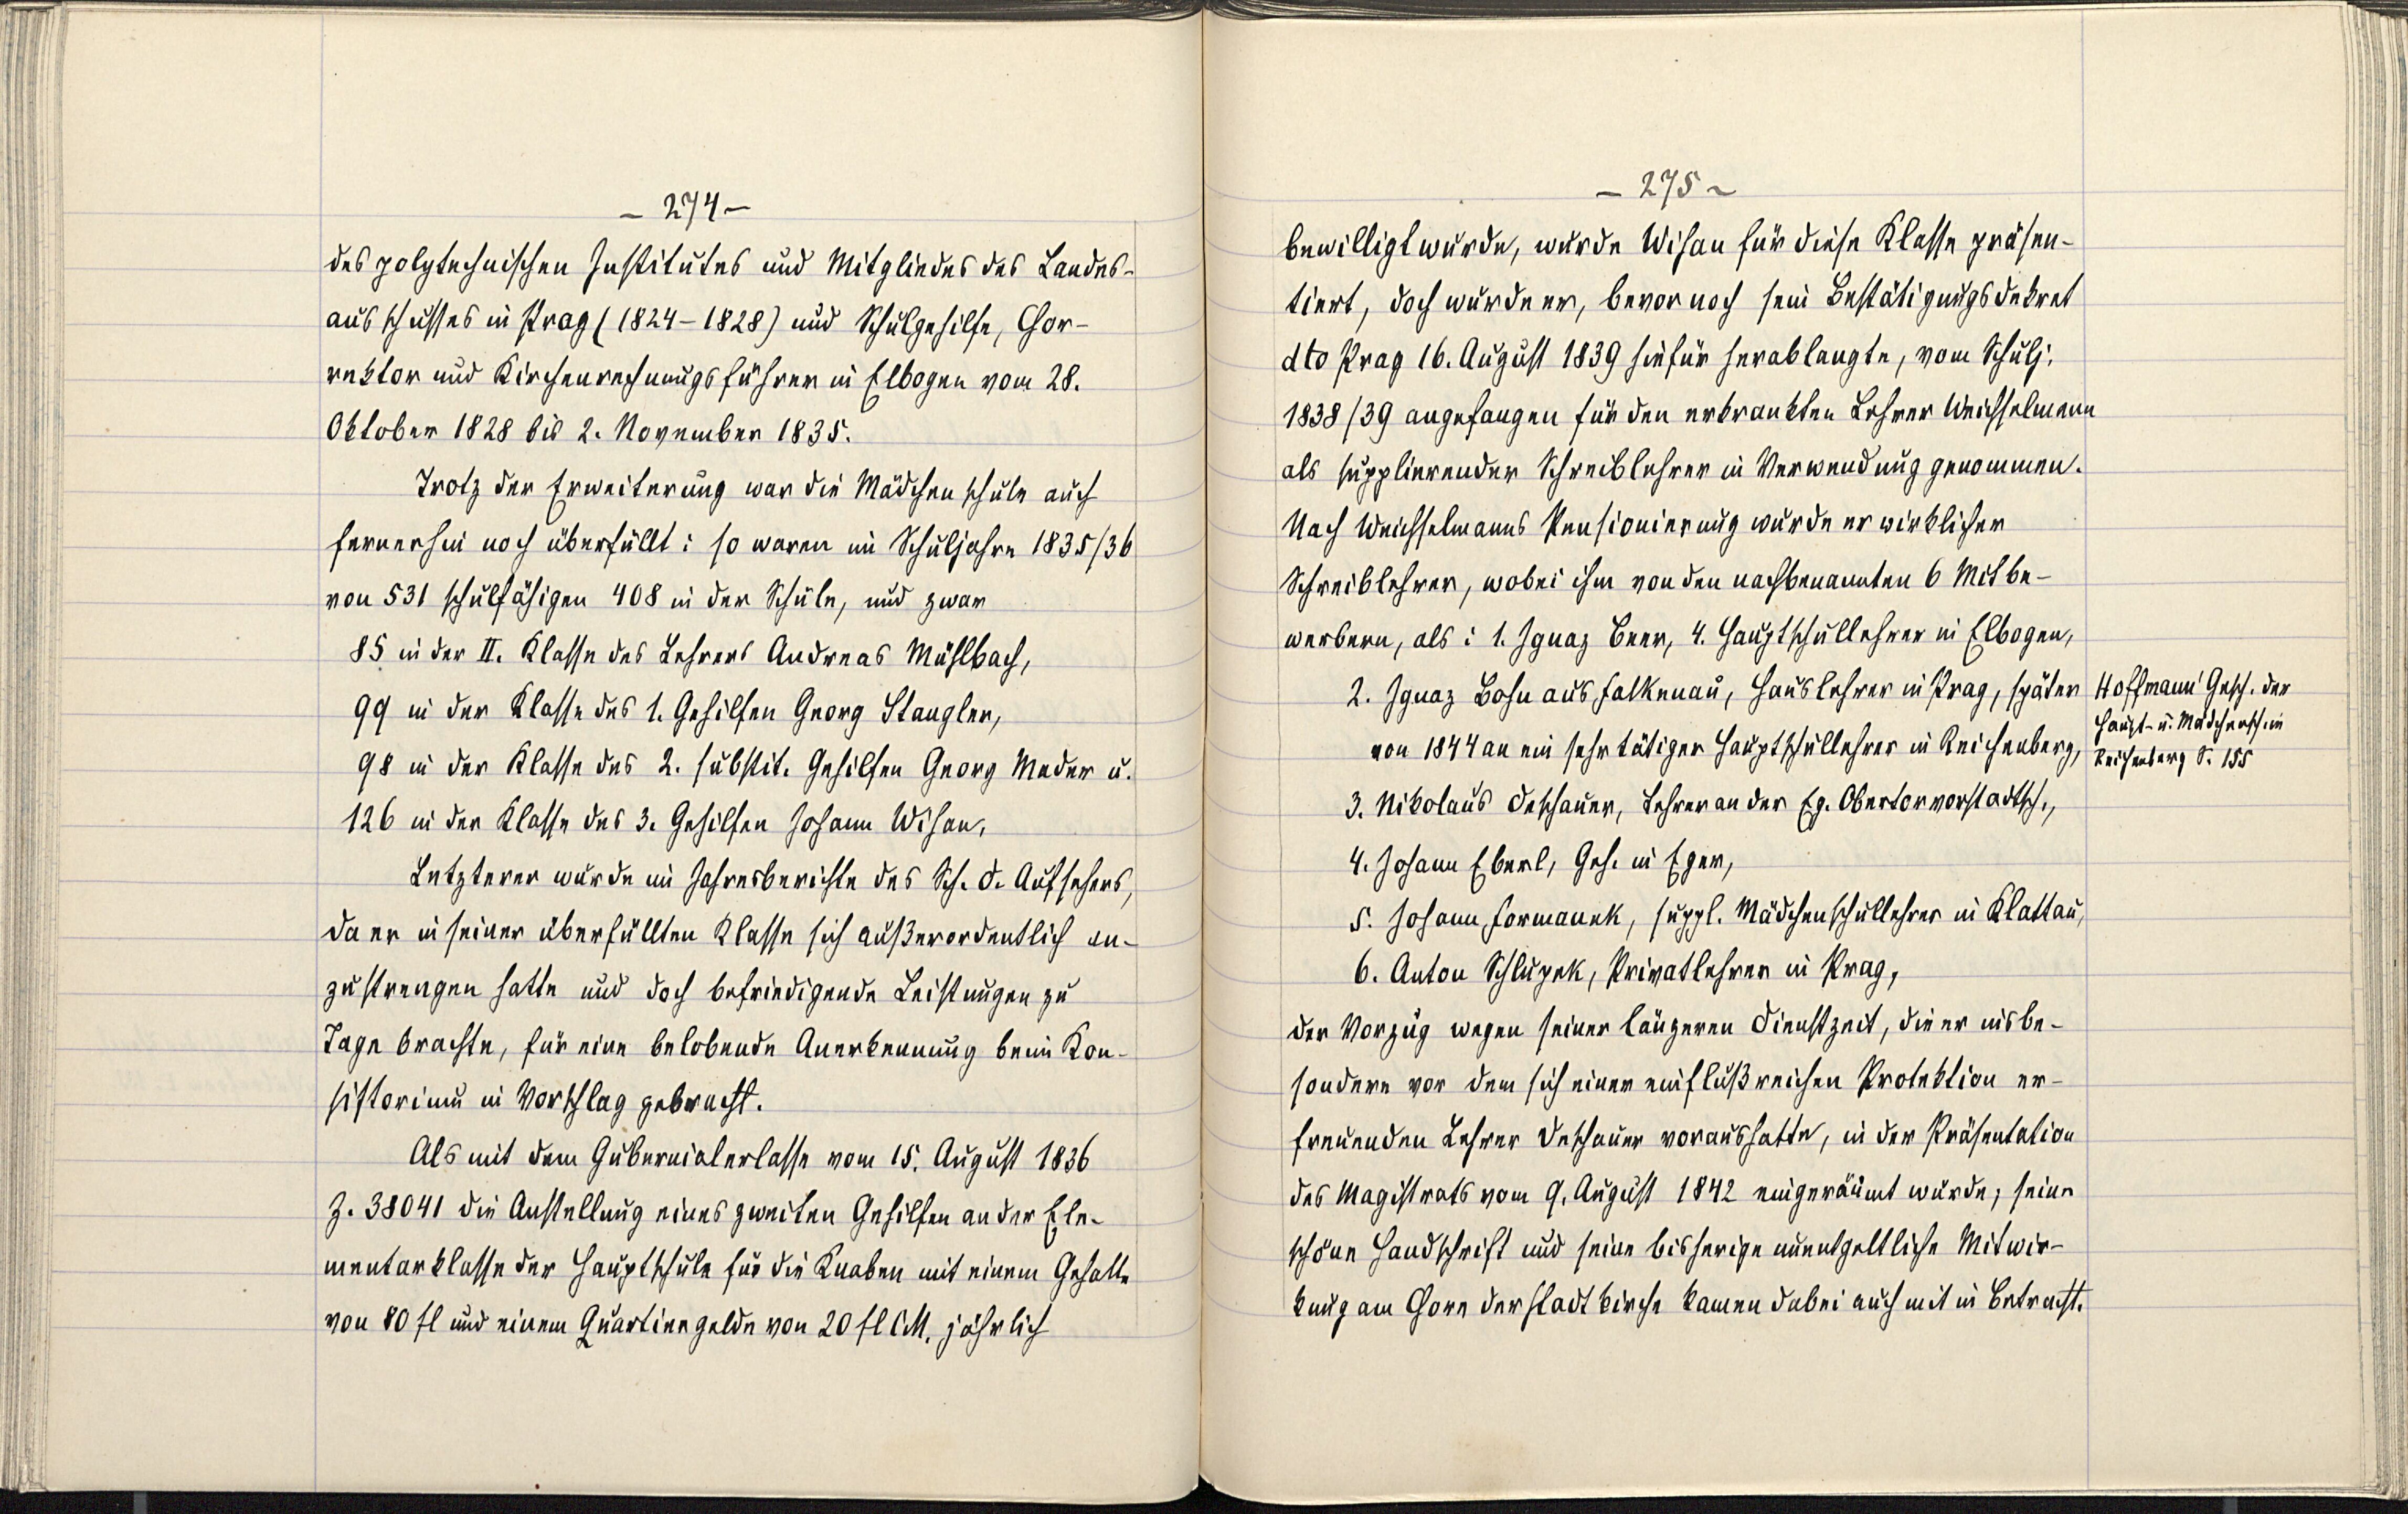 – 274 –
des polytechnischen Institutes und Mitgliedes des Landes-
ausschusses in Prag (1824–1828) und Schulgehilfe, Chor-
rektor und Kirchenrechnungsführer in Elbogen vom 28.
Oktober 1828 bis 2. November 1835.
Trotz der Erweiterung war die Mädchenschule auch
fernerhin noch überfüllt: so waren im Schuljahre 1835/36
von 531 schulfähigen 408 in der Schule, und zwar
85 in der II. Klasse des Lehrers Andreas Mühlbach,
99 in der Klasse des 1. Gehilfen Georg Stangler,
98 in der Klasse des 2. substit. Gehilfen Georg Meder u.
126 in der Klasse des 3. Gehilfen Johann Wihan.
Letzterer wurde im Jahresberichte des Sch. d. Aufsehers,
da er in seiner überfüllten Klasse sich außerordentlich an-
zustrengen hatte und doch befriedigende Leistungen zu
Tage brachte, für eine belobende Anerkennung beim Kon-
sistorium in Vorschlag gebracht.
Als mit dem Gubernialerlasse vom 15. August 1836
Z. 38041 die Anstellung eines zweiten Gehilfen an der Ele-
mentarklasse der Hauptschule für die Knaben mit einem Gehalte
von 80 fl und einem Quartiergelde von 20 fl CM. jährlich
– 275 –
bewilligt wurde, wurde Wihan für diese Klasse präsen-
tiert, doch wurde er, bevor noch sein Bestätigungsdekret
dto Prag 16. August 1839 hiefür herablangte, vom Schulj.
1838/39 angefangen für den erkrankten Lehrer Weichselmann
als supplierender Schreiblehrer in Verwendung genommen.
Nach Weichselmanns Pensionierung wurde er wirklicher
Schreiblehrer, wobei ihm von den nachbenannten 6 Mitbe-
werbern, als: 1. Ignaz Beer, 4. Hauptschullehrer in Elbogen,
2. Ignaz Bohn aus Falkenau, Hauslehrer in Prag, später
von 1844 an ein sehr tätiger Hauptschullehrer in Reichenberg,
3. Nikolaus Deschauer, Lehrer an der Eg. Obertorvorstadtsch.,
4. Johann Eberl, Geh. in Eger,
5. Johann Formanek, suppl. Mädchenschullehrer in Klattau,
6. Anton Schlupek, Privatlehrer in Prag,
der Vorzug wegen seiner längeren Dienstzeit, die er insbe-
sondere vor dem sich einer einflußreichen Protektion er-
freuenden Lehrer Deschauer voraushatte, in der Präsentation
des Magistrats vom 9. August 1842 eingeräumt wurde; seine
schöne Handschrift und seine bisherige unentgeltliche Mitwir-
kung am Chore der Stadtkirche kamen dabei auch mit in Betracht.
Hoffmann Gesch. der
Haupt- u. Mädchensch. in
Reichenberg S. 155